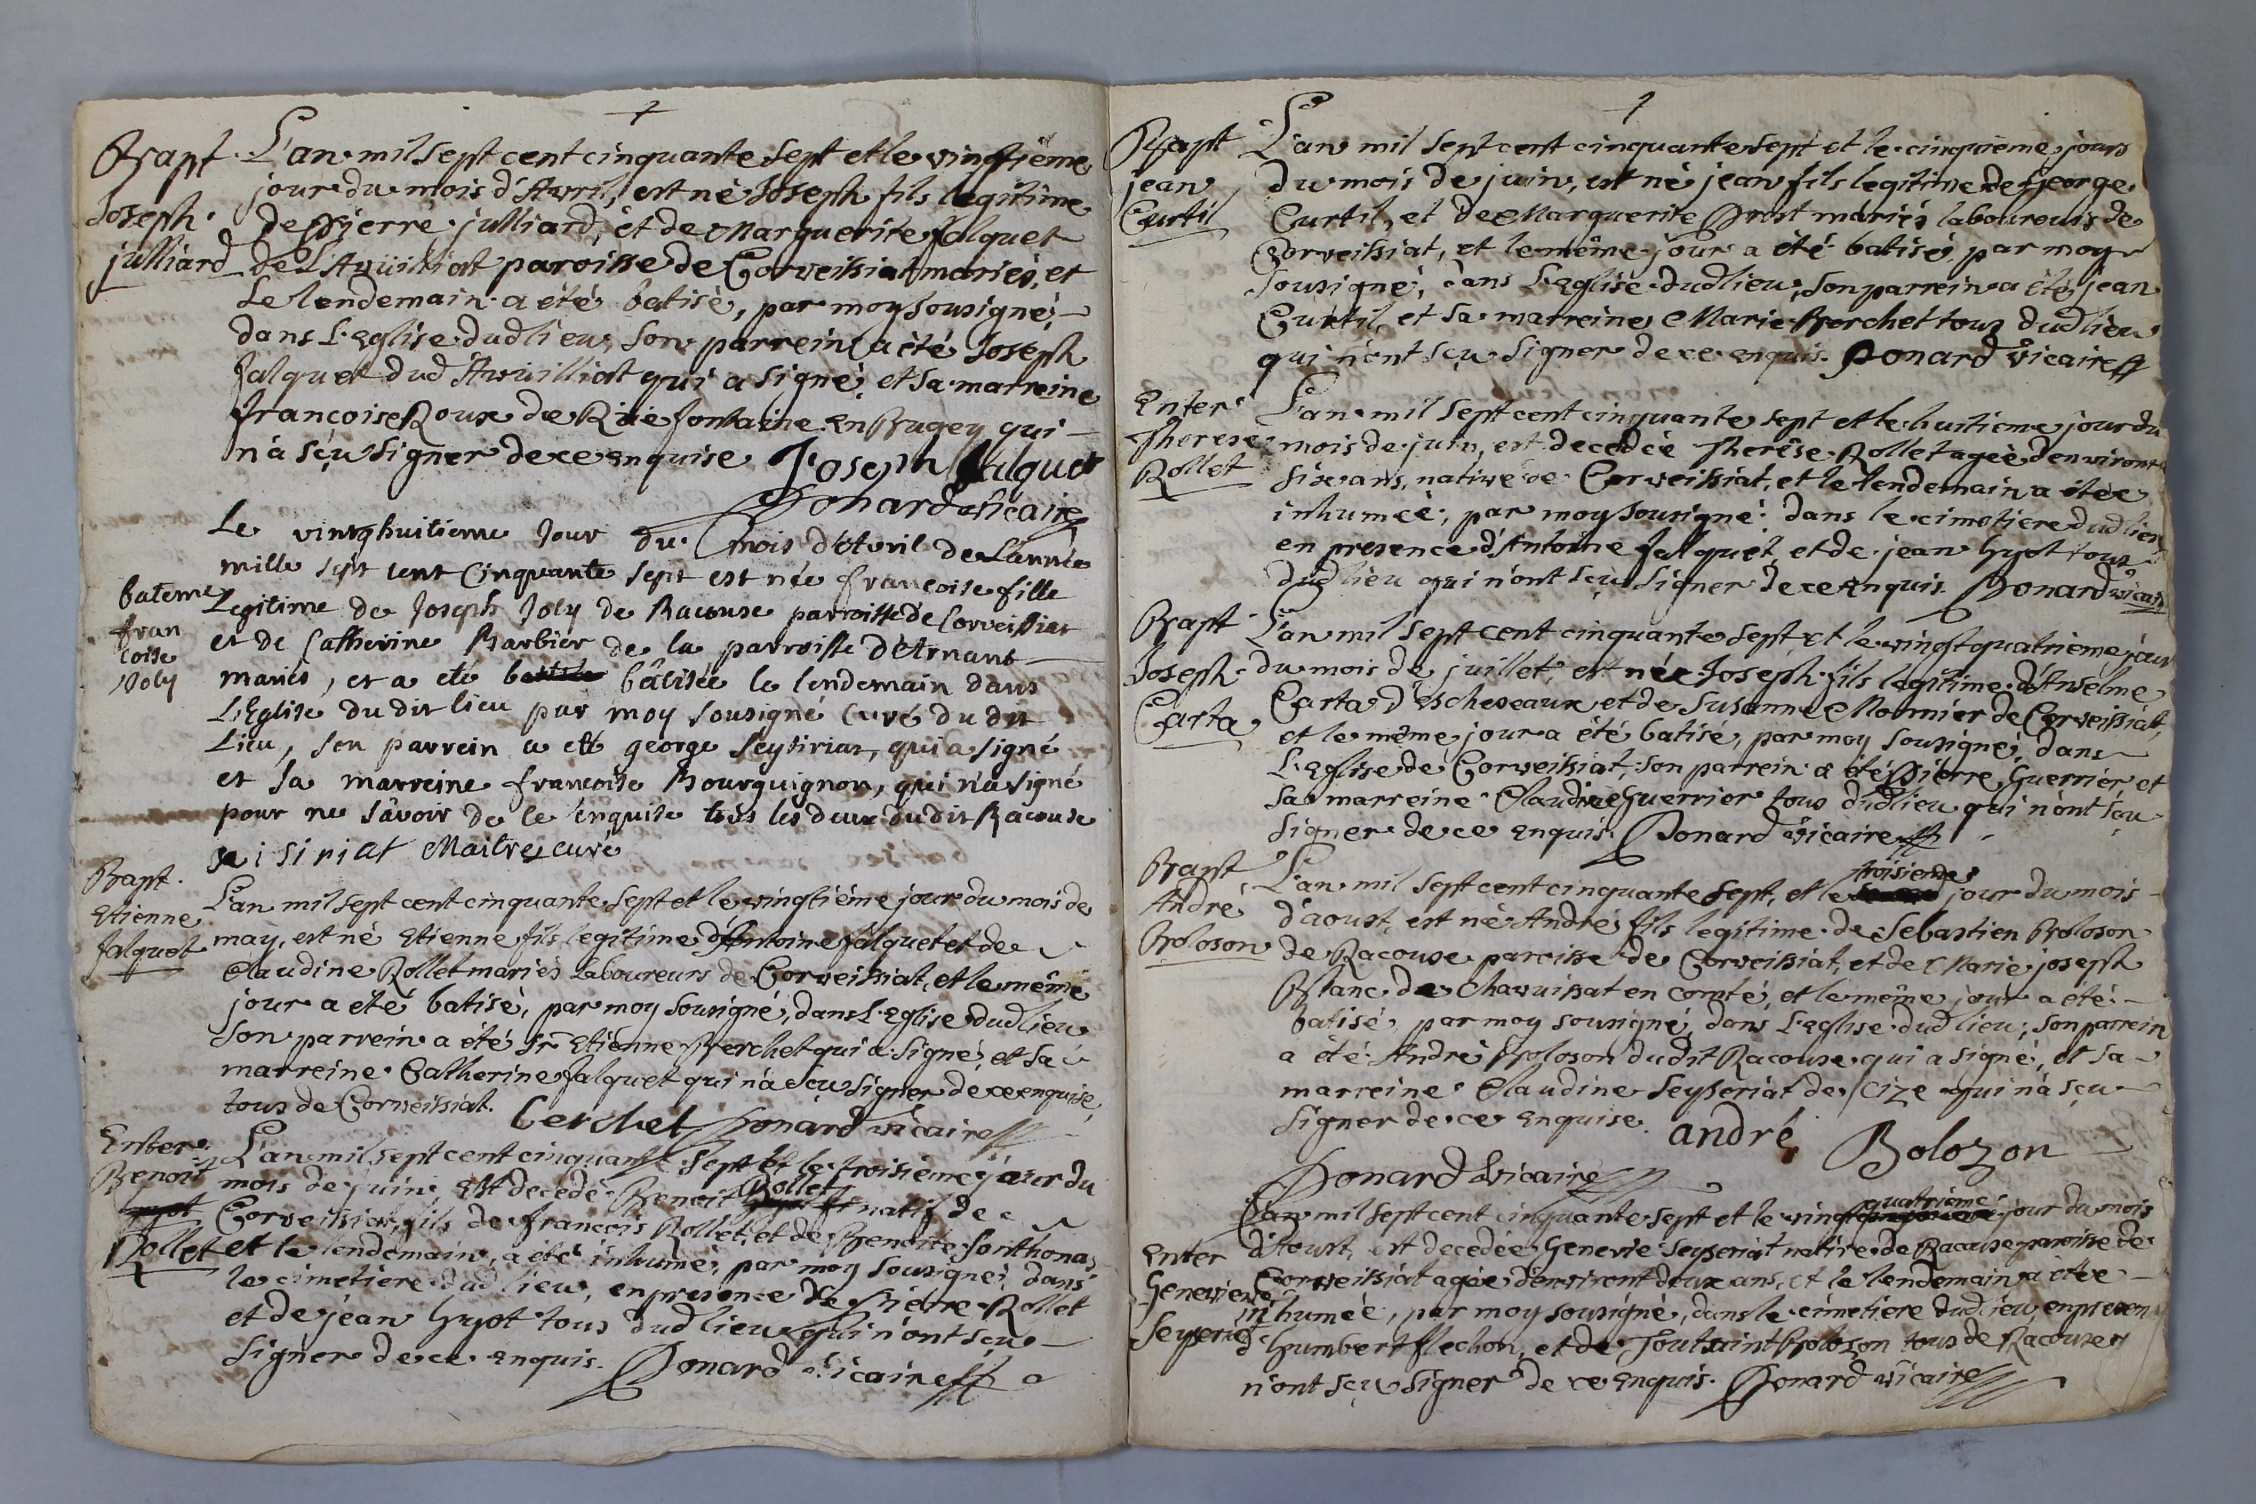 Bapt. L'an mil sept cent cinquante sept et le vingtiéme
Joseph jour du mois d'Avril, est né Joseph fils legitime
julliard de Pierre julliard, et de Marguerite jalquet
paroisse de Corveissiat mariés, et
Le lendemain a été batisé, par moy sousigné,
dans L'Eglise dud lieu, son parrein a été Joseph
jalquet dud qui a signé, et sa marreine
francoise Roux de fontaine en Bugey qui
n'a sçu signer de ce enquise Joseph jalquet
Donard vicaire
Le vingthuitieme jour du mois d'Avril de L'année
mille sept cent Cinquante sept est née francoise fille
bateme Legitime de Joseph Joly de Racouse parroisse de Corveissiat
fran et de Catherine Barbier de la parroisse d'Arnans
coise mariés, et a eté batisée le lendemain dans
Joly L'Eglise du dit lieu par moy sousigné Curé du dit
Lieu, son parrein a eté george Seysiriat, qui a signé
et sa marreine francoise Bourguignon, qui n'a signé
pour ne sâvoir de ce enquise tous les deux dudit Racouse
seisiriat Maitre curé
Bapt. L'an mil sept cent cinquante sept et le vingtiéme jour du mois de
Etienne may, est né Etienne fils legitime d'Antoine jalquet et de
jalquet Claudine Rollet mariés Laboureurs de Corveissiat, et le même
jour a été batisé, par moy sousigné, dans L'Eglise dud lieu
son parrein a été Sr Etienne Berchet qui a signé, et sa
marreine Catherine jalquet qui n'a sçu signer de ce enquise,
tous de Corveissiat. berchet Donard vicaire
Enter. L'an mil sept cent cinquante sept et le troisiéme jour du
Benoit mois de juin, est decedé Benoit Rollet natif de
hyot Corveissiat, fils de francois Rollet, et de Benoite fonthona,
Rollet et le lendemain, a été inhumé, par moy sousigné, dans
le cimetiere dud lieu, en presence de Pierre Rollet
et de jean hyot tous dud lieu qui n'ont sçu
signer de ce enquis. Donard vicaire
Bapt L'an mil sept cent cinquante sept et le cinquiéme jours
jean du mois de juin, est né jean fils legitime de George
Curtil Curtil, et de Marguerite Prost mariés laboureurs de
Corveissiat, et le même jour a été batisé par moy
sousigné, dans L'Eglise dud lieu, son parrein a été jean
Curtil, et sa marreine Marie Berchet tous dud lieu
qui n'ont sçu signer de ce enquis. Donard vicaire
Enter L'an mil sept cent cinquante sept et le huitieme jour du
Therese mois de juin, est decedée Therêse Rollet ageé d'environt
Rollet six ans, native de Corveissiat, et le lendemain a étée
inhumeé, par moy sousigné, dans le cimetiere dud lieu
en presence d'Antoine jalquet, et de jean hyot tous
dud lieu qui n'ont sçu signer de ce enquis. Donard vicaire
Bapt L'an mil sept cent cinquante sept, et le vingt quatrieme jour
Joseph du mois de juillet, est né Joseph fils legitime d'Anselme
Carta Carta d'Escheseaux et de Susanne Monnier de Corveissiat,
et le même jour a été batisé, par moy sousigné, dans
L'Eglise de Corveissiat, son parrein a été Pierre Guerrier, et
sa marreine Claudine Guerrier tous dud lieu qui n'ont sçu
signer de ce enquis. Donard vicaire
Bapt L'an mil sept cent cinquante sept, et le troisieme jour du mois
André d'aoust, est né André fils legitime de Sebastien Boloson
Boloson de Racouse paroisse de Corveissiat, et de Marie joseph
Blanc de Chavuissat en comté, et le même jour a été
batisé, par moy sousigné, dans L'Eglise dud lieu, son parrein
a été André Boloson dudit Racouse qui a signé, et sa
marreine Claudine Seyseriat de Cize qui n'a sçu
signer de ce enquise. andré Bolozon
Donard vicaire
L'an mil sept cent cinquante sept et le vingt quatriéme jour du mois
Enter d'Aoust, est decedée Genevie Seyseriat native de Racouse paroisse de
Genevieve Corveissiat agée d'environt deux ans, et le lendemain a étée
Seyseriat inhumeé, par moy sousigné, dans le cimetiere dud lieu, en presen
d'humbert flechon, et de Toutsaint Boloson tous de Racouse
n'ont sçu signer de ce enquis. Donard vicaire